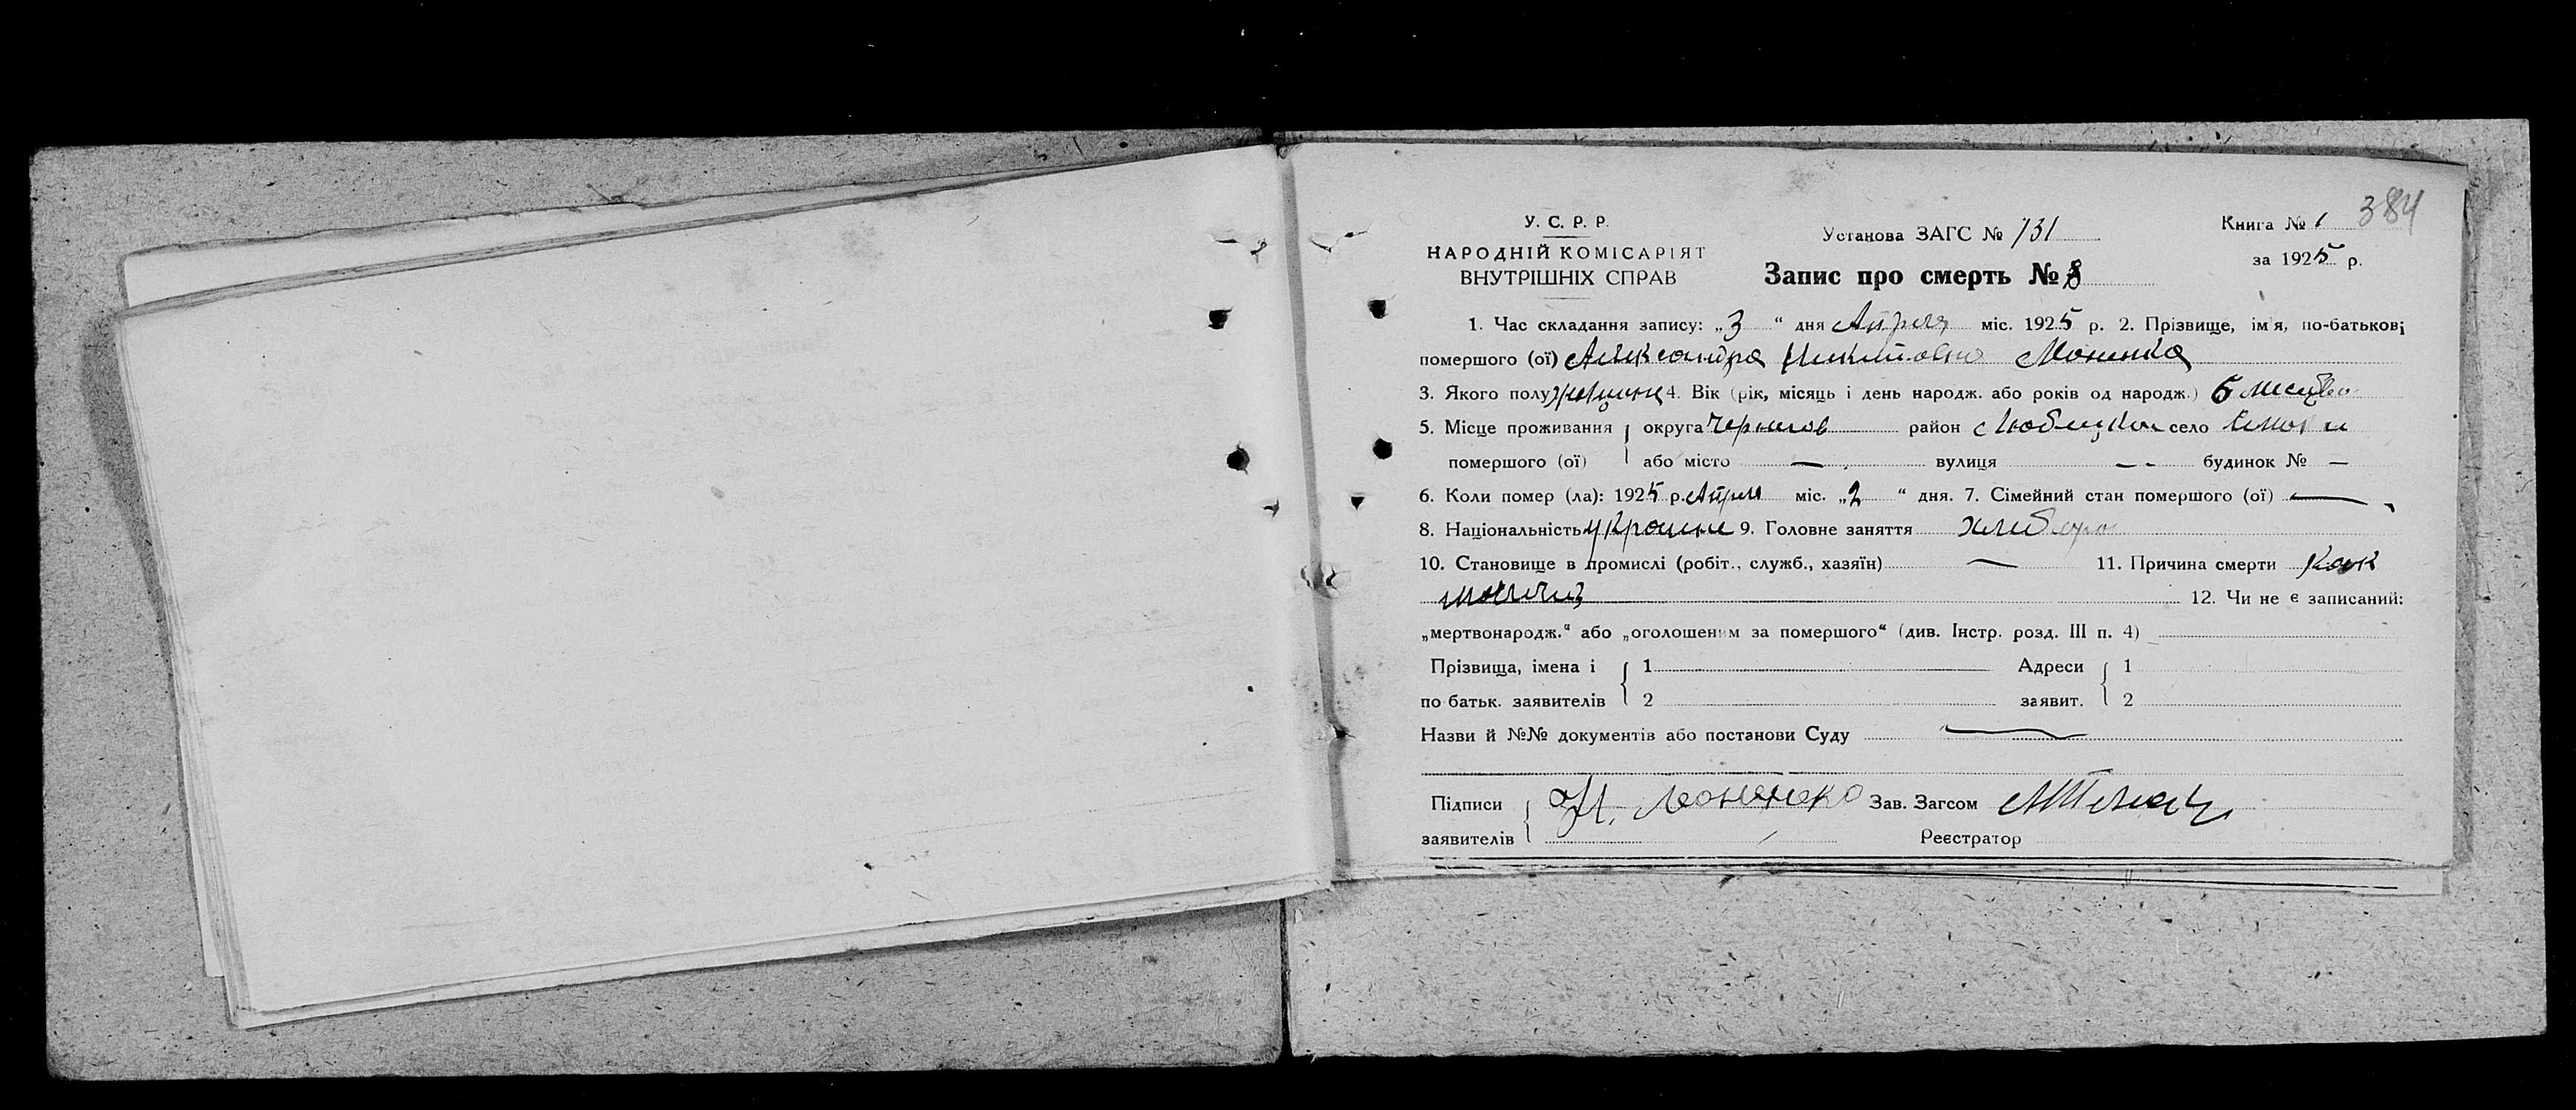 384
У. С. Р. Р.
НАРОДНІЙ КОМІСАРІЯТ
ВНУТРІШНІХ СПРАВ
Установа ЗАГС № 131
Книга № 1
за 1925 р.
Запис про смерть № 8
1. Час складання запису: „3“ дня Апреля міс. 1925 р. 2. Прізвище, ім'я, по-батькові
помершого (ої) Александра Никитовна
3. Якого полу 4. Вік (рік, місяць і день народж. або років од народж.) 6
5. Місце проживання округа Чернигов район Любецкий село
помершого (ої) або місто — вулиця — - будинок № —
6. Коли помер (ла): 1925 р. Апреля міс. „2“ дня. 7. Сімейний стан помершого (ої) —
8. Національність 9. Головне заняття
10. Становище в промислі (робіт., служб., хазяїн) — 11. Причина смерти
12. Чи не є записаний:
„мертвонародж.“ або „оголошеним за помершого“ (див. Інстр. розд. III п. 4)
Прізвища, імена і { 1 Адреси { 1
по батьк. заявителів 2 заявит. 2
Назви й №№ документів або постанови Суду —
Підписи Зав. Загсом
заявителів Реєстратор